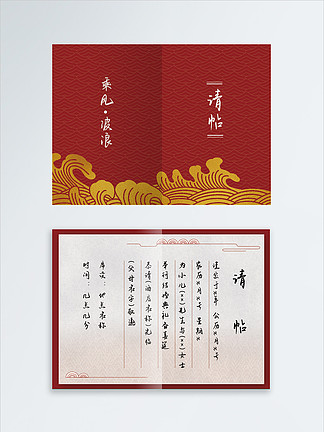 请帖
乘风·波浪
请帖
谨定于x年 公历x月x号
农历x月x号 星期x
为小儿(xx)先生与(xx)女士
举行结婚典礼备喜筵
恭请(酒店名称)光临
(父母名字)敬邀
席设:地点名称
时间:几点几分